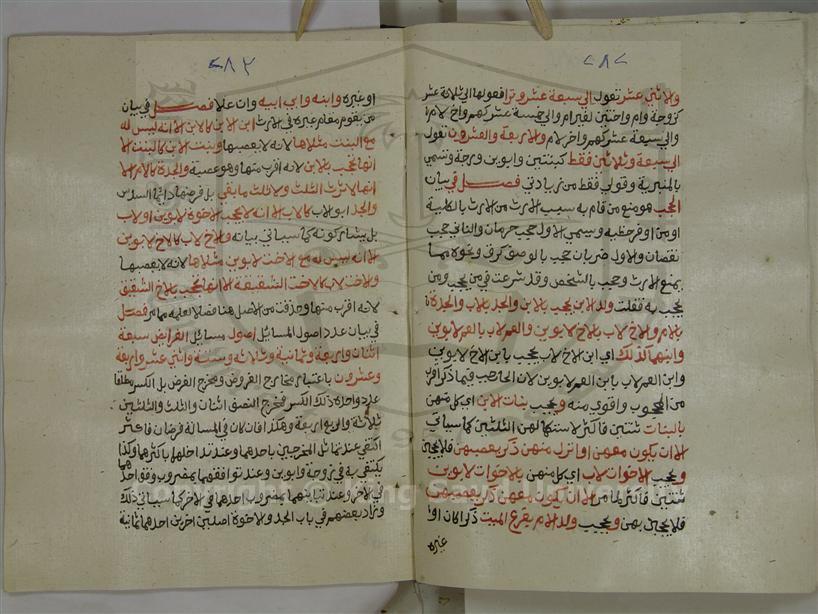 ٢٨٢
ولاثني عشر تعول الى سبعة عشر وترا فعولها الى ثلاثة عشر
كزوجة وام واختين لغير ام والى خمسة عشر كهم واخ لام
والى سبعة عشر كهم واخر لام والاربعة والعشرون تعول
الى سبعة وثلاثين فقط كبنتين وابوين وزوجة وتسمى
بالمنبرية وقولي فقط من زيادتي فصل في بيان
الحجب هو منع من قام به سبب الارث من الارث بالكلية
او من اوفر حظيه ويسمى الاول حجب حرمان والثاني حجب
نقصان والاول ضربان حجب بالوصف كرق ونحوه مما
يمنع الارث وحجب بالشخص وقد شرعت في من يحجب ومن
يحجب به فقلت ولد الابن يحجب بالابن والجد بالاب والجدة
بالام والاخ لاب بالاخ لابوين والعم لاب بالعم لابوين
وابنهما كذلك اي ابن الاخ لاب يحجب بابن الاخ لابوين
وابن العم لاب بابن العم لابوين لان الحاجب فيما ذكر اقرب
من المحجوب واقوى منه ويحجب بنات الابن اي كل منهن
بالبنات ثنتين فاكثر لاستكمالهن الثلثين كما سياتي
الا ان يكون معهن او انزل منهن ذكر يعصبهن فلا يحجبن
ويحجب الاخوات لاب اي كل منهن بالاخوات لابوين
ثنتين فاكثر لما مر الا ان يكون معهن ذكر يعصبهن
فلا يحجبن بهن ويحجب ولد الام بفرع الميت ذكرا كان او
غيره
٢٨٣
او غيره وابنه وابي ابيه وان علا فصل في بيان
من يقوم مقام غيره في الارث ابن الابن كالابن الا انه ليس له
مع البنت مثلاها لانه لا يعصبها وبنت الابن كالبنت الا
انها تحجب بالابن لانه اقرب منها وهو عصبة والجدة كالام الا
انها لا ترث الثلث ولا ثلث ما بقي بل فرضها دائما السدس
والجد ابو الاب كالاب الا انه لا يحجب الاخوة لابوين او لاب
بل يشاركونه كما سياتي بيانه والاخ لاب كالاخ لابوين
الا انه ليس له مع الاخت لابوين مثلاها لانه لا يعصبها
والاخت لاب كالاخت الشقيقة الا انها تحجب بالاخ الشقيق
لانه اقرب منها وحذفت من الاصل هنا فصلا لعلمه مما مر فصل
في بيان عدد اصول المسائل اصول مسائل الفرائض سبعة
اثنان واربعة وثمانية وثلاثة وستة واثني عشر واربعة
وعشرون باعتبار مخارج الفروض ومخرج الفرض بل الكسر مطلقا
عدد واحده ذلك الكسر فمخرج النصف اثنان والثلث والثلثين
ثلاثة والربع اربعة وهكذا فان كان في المسالة فرضان فاكثر
اكتفي عند تماثل المخرجين باحدهما وعند تداخلهما باكثرهما وكذا
يكتفى به في زوجة وابوين وعند توافقهما بمضروب وفق احدهما
في الاخر وعند تباينهما بمضروب احدهما في الاخر كما سياتي ذلك
وزاد بعضهم في باب الجد والاخوة اصلين اخرين احدهما ثمانية